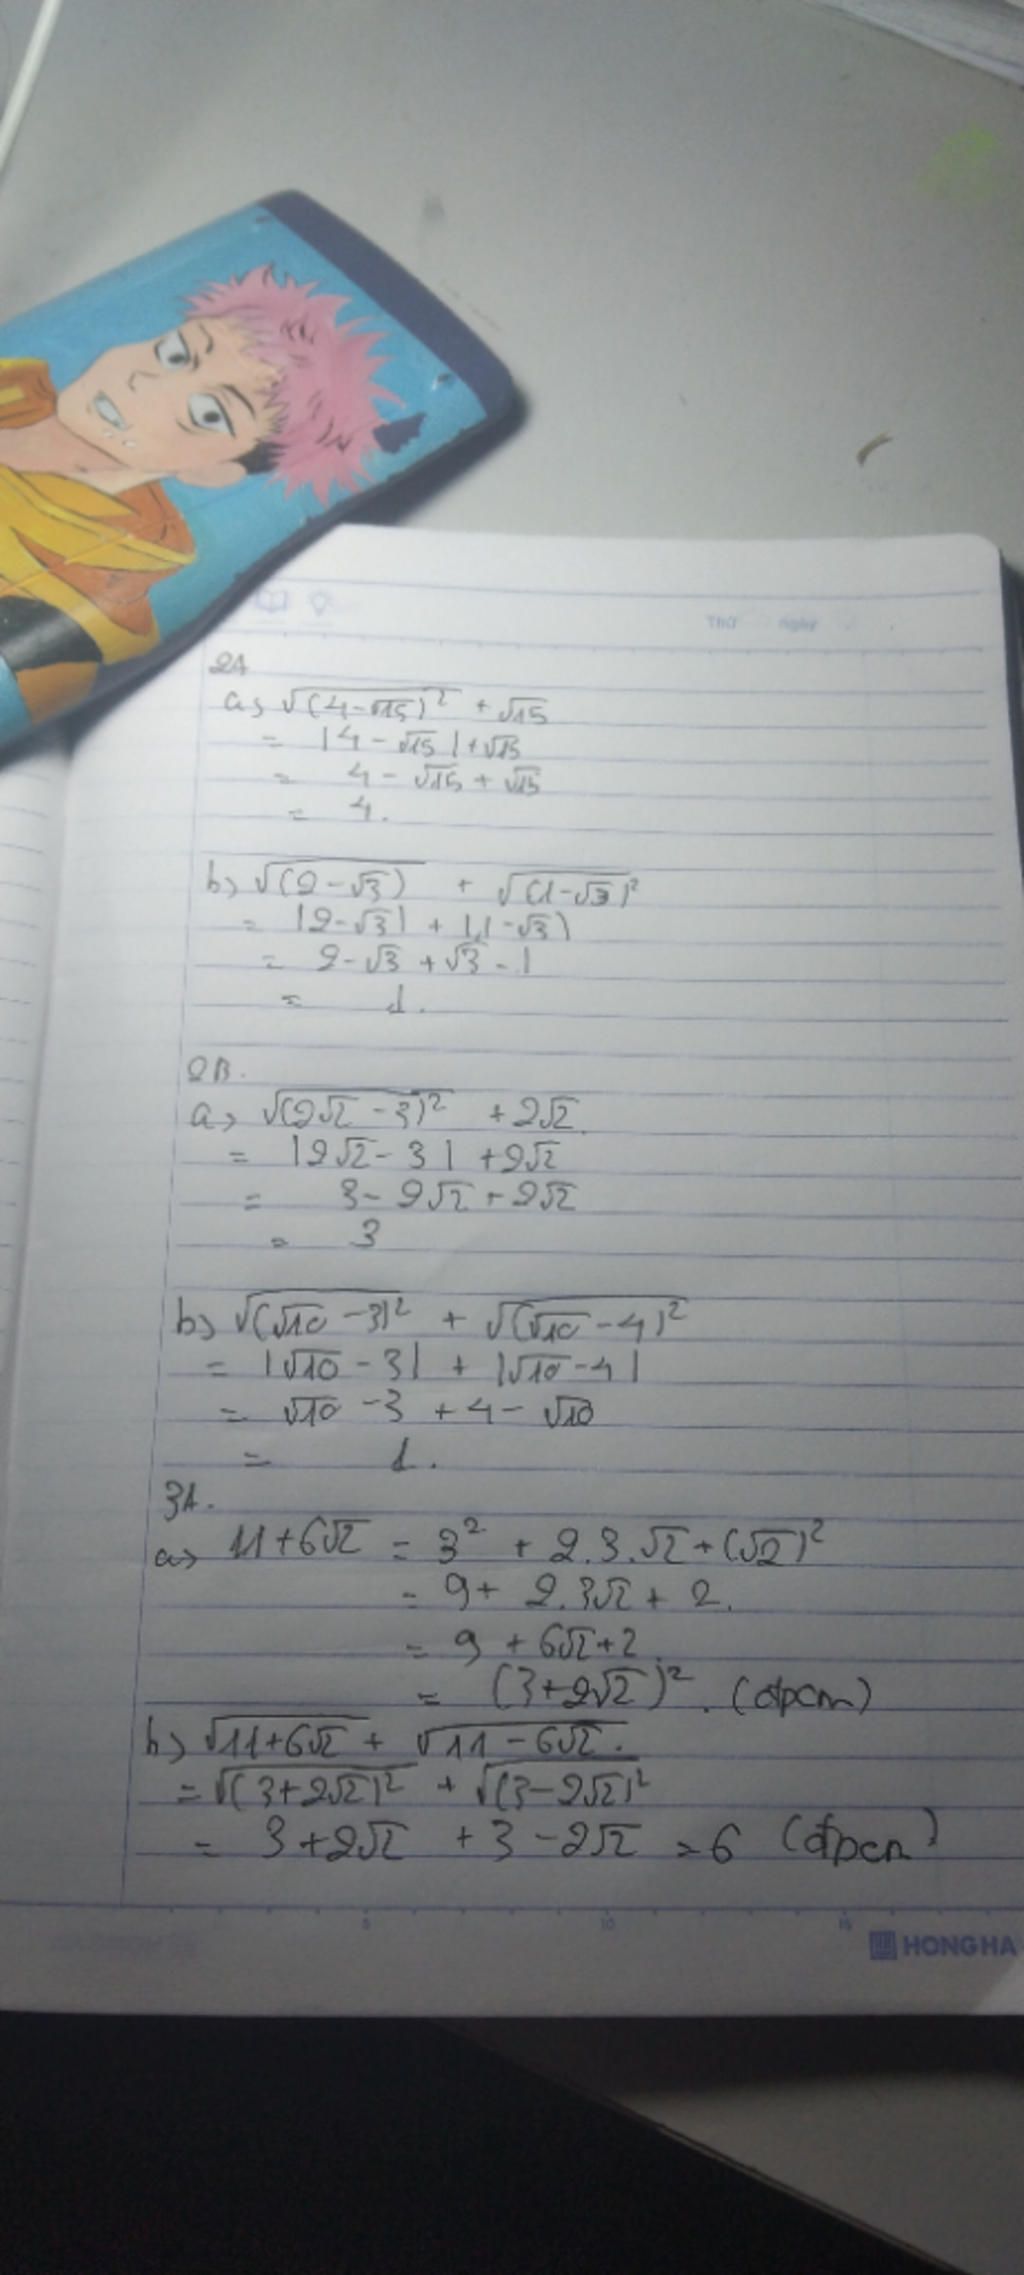 Thứ ngày
2A
a) √(4-√15)² + √15
= |4-√15| + √15
= 4 - √15 + √15
= 4.
b) √(2-√3) + √(1-√3)²
= |2-√3| + |1-√3|
= 2-√3 + √3 - 1
= 1.
2B.
a) √(2√2 - 3)² + 2√2
= |2√2 - 3| + 2√2
= 3 - 2√2 + 2√2
= 3
b) √(√10 - 3)² + √(√10 - 4)²
= |√10 - 3| + |√10 - 4|
= √10 - 3 + 4 - √10
= 1.
3A.
a) 11 + 6√2 = 3² + 2.3.√2 + (√2)²
= 9 + 2.3√2 + 2.
= 9 + 6√2 + 2.
= (3+2√2)². (đpcm)
b) √11+6√2 + √11-6√2.
= √(3+2√2)² + √(3-2√2)²
= 3+2√2 + 3-2√2 = 6 (đpcm)
5 10 15
HONG HA